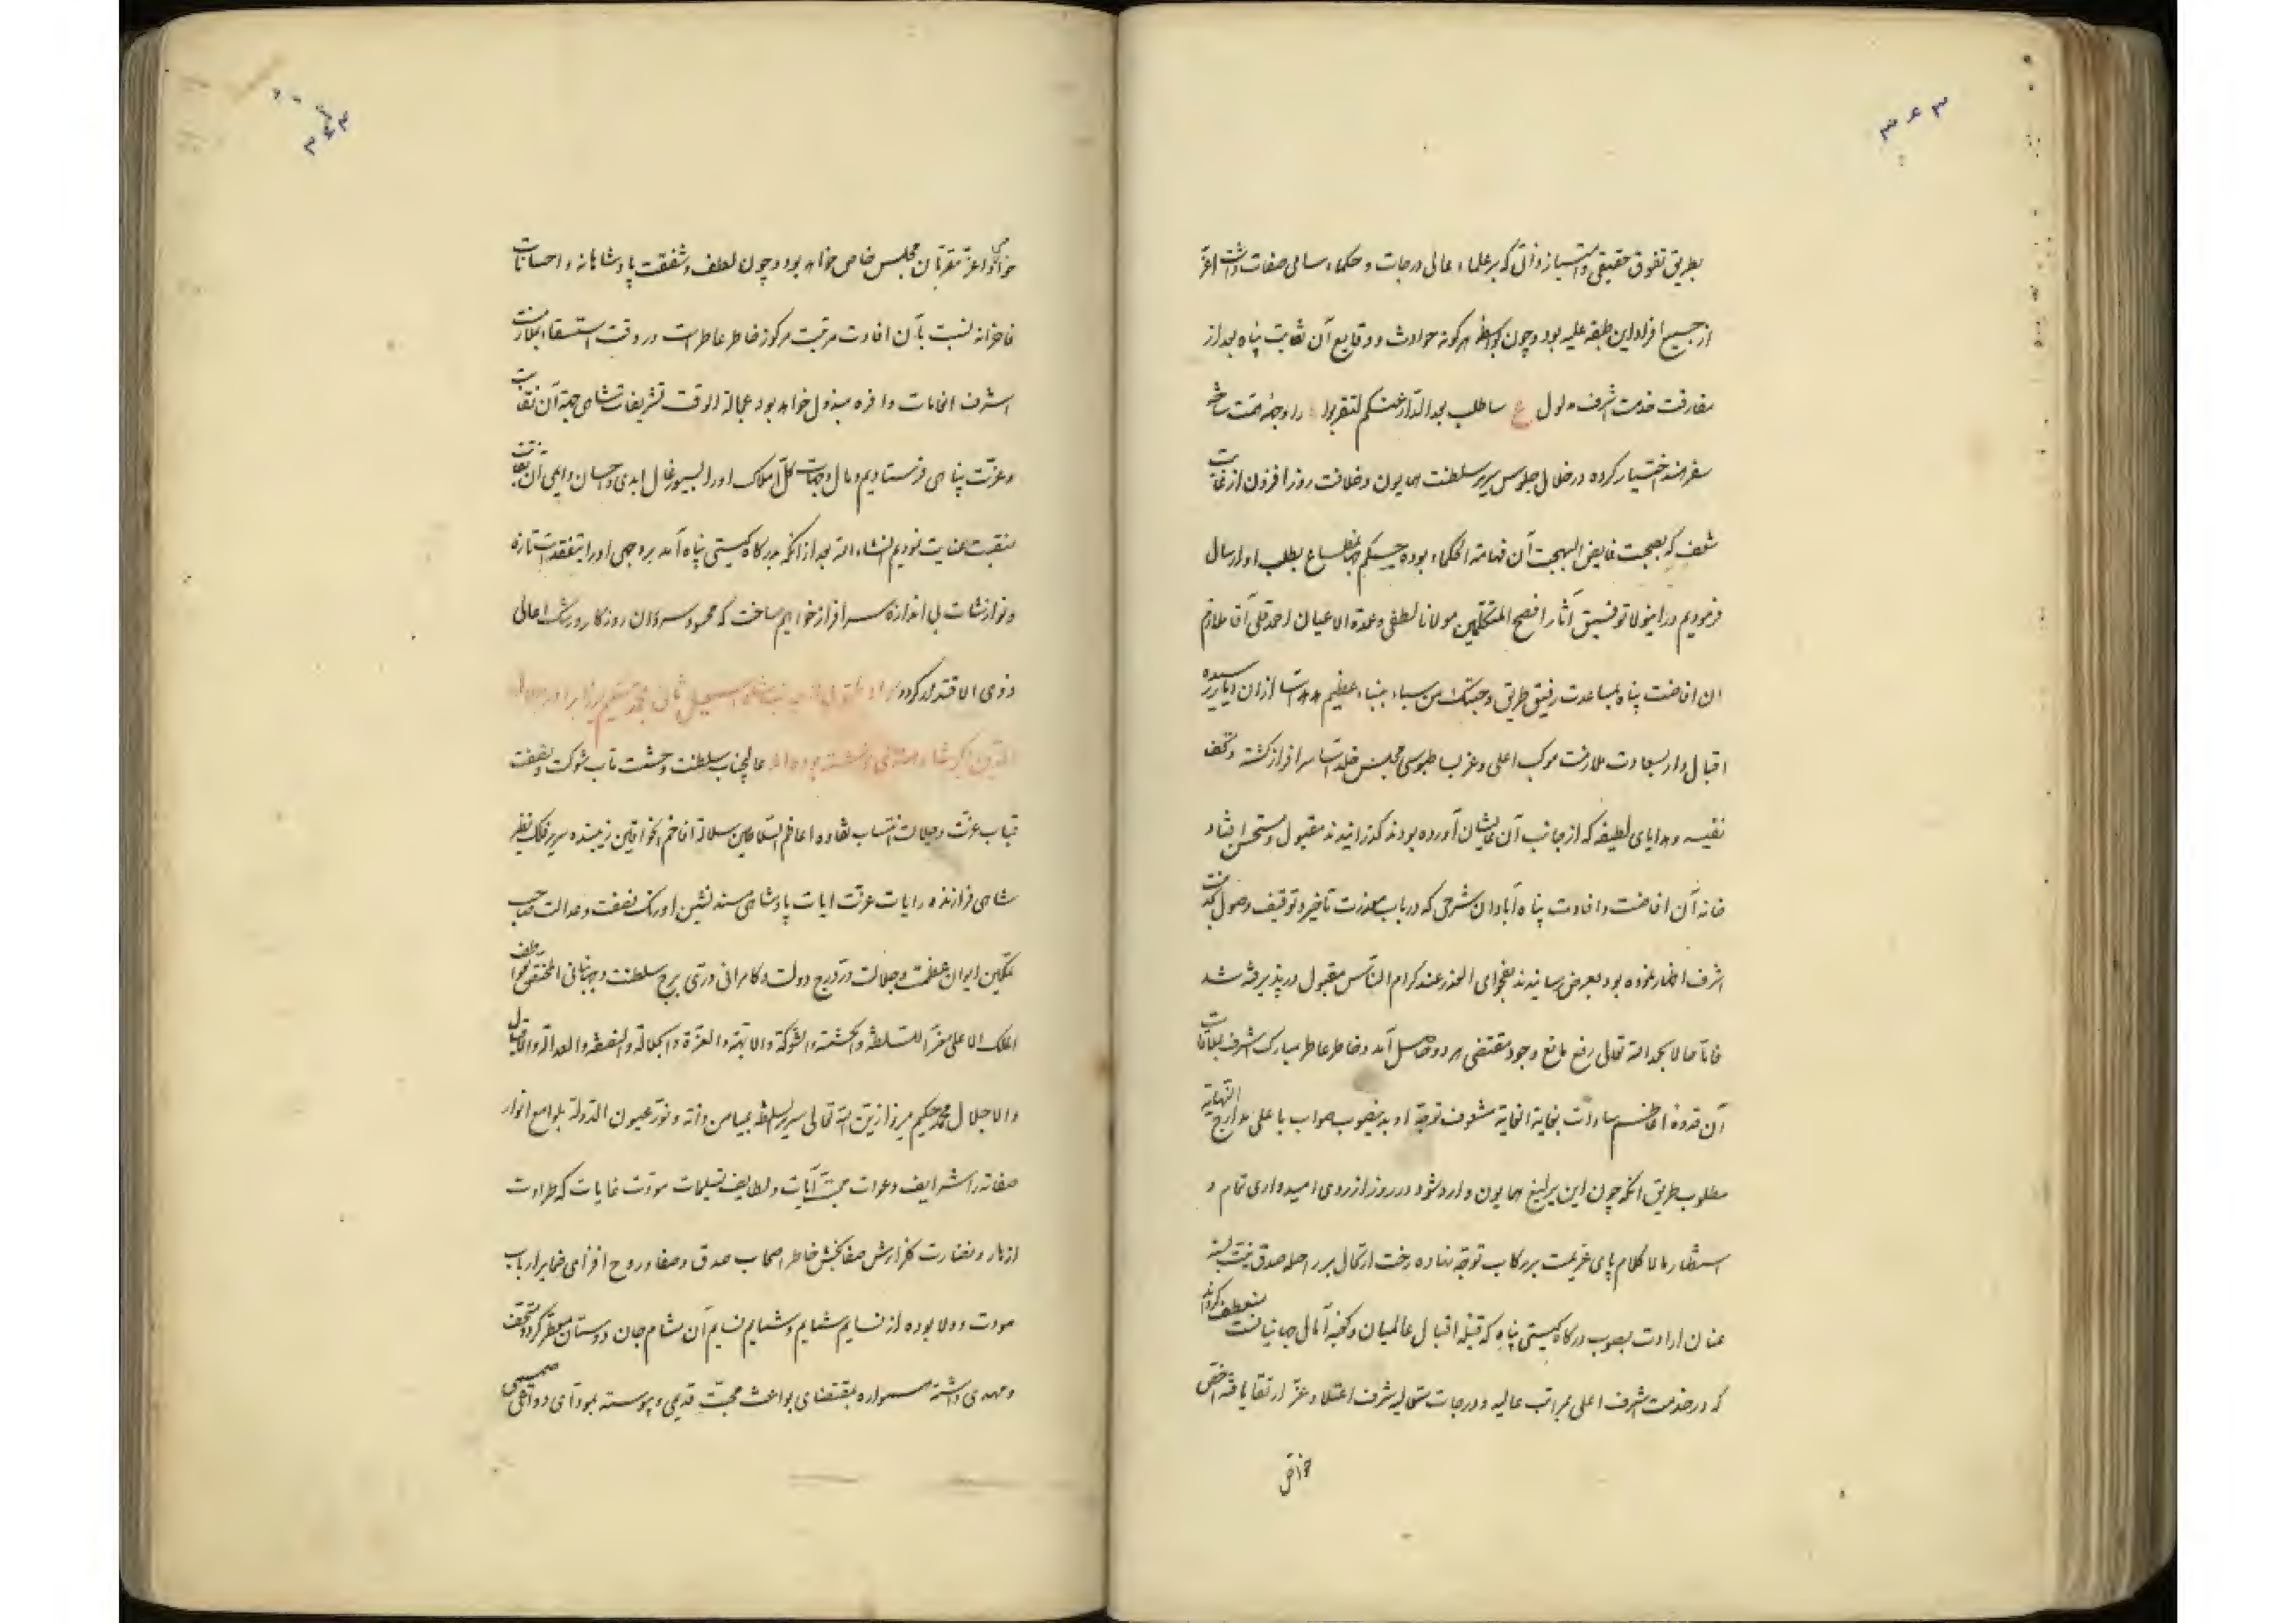 ۳۶۳
بطریق تفوق حقیقی و امتیاز ذاتی که بر علماء عالی درجات و حکماء سامی صفات داشت اعز
از جمیع افراد این طبقه علیه بود و چون بواسطه هرگونه حوادث و وقایع آن نقابت پناه بعد از
مفارقت خدمت اشرف مدلول ع ساطلب بعد الدار عنکم لتقربوا را وجهه همت ساخته
سفر هند اختیار کرده در خلال جلوس سریر سلطنت همایون و خلافت روز افزون از غایت
شعف که بصحبت فایض البهجت آن فهامة الحکماء بوده حسبکم جهانمطاع بطلب او ارسال
فرمودیم در اینولا توفیق آثار افصح المتکلمین مولانا لطفی و عمدة الاعیان احمدقلی آقا ملازم
ان افاضت پناه بمساعدت رفیق طریق وجئتک من سباء بنباء عظیم از ان دیار رسیده
اقبال وار بسعادت ملازمت موکب اعلی و عز بساط بوسی مجلس خلد آسا سرافراز گشته و تحف
نفیسه و هدایای لطیفه که از جانب آن عالیشان آورده بودند گذرانیدند مقبول و مستحسن افتاد
خانه آن افاضت و افادت پناه آبادان شرحی که در باب معذرت تاخیر و توقیف وصول بخدمت
اشرف اظهار نموده بود بعرض رسانیدند بفحوای العذر عند کرام الناس مقبول در پذیرفته شد
فاما حالا بحمد الله تعالی رفع مانع وجود مقتضی هر دو حاصل آمد و خاطر عاطر مبارک اشرف بملاقات
آن قدوه اعاظم سادات بغایة الغایة مشعوف توجه او بدینصوب صواب با علی مدارج النهایه
مطلوب طریق انکه چون این یرلیغ همایون وارد شود در روز از روی امیدواری تمام و
استظهار مالا کلام پای عزیمت بر رکاب توجه نهاده رخت ارتحال بر راحله صدق نیت بسته
عنان ارادت بصوب درگاه گیتی پناه که قبله اقبال عالمیان و کعبه آمال جهانیانست منعطف گرداند
که در خدمت اشرف اعلی بمراتب عالیه و درجات متعالیه شرف اعتلا و عز ارتقا یافته اخص
خواص
۳۶۴
خواص و اعز مقربان مجلس خاص خواهد بود و چون لطف و شفقت پادشاهانه و احسانات
فاخرانه نسبت بآن افادت مرتبت مرکوز خاطر عاطر است در وقت استسقاء بملازمت
اشرف انعامات وافره مبذول خواهد بود عجالة الوقت تشریفات شاهی جهة آن نقابت
و عزت پناهی فرستادیم و مال و جهات کل املاک او را بسیورغال ابدی و احسان دایمی آن نقابت
منقبت عنایت نمودیم انشاء الله بعد از انکه بدرگاه گیتی پناه آمد بروجهی او را بتفقدات تازه
و نوازشات بی اندازه سرافراز خواهیم ساخت که محسود سروران روزگار و رشک اهالی
ذوی الاقتدار گردد
عالیجناب سلطنت و حشمت مآب شوکت و نصفت
قباب عزت و جلالت انتساب نقاوه اعاظم السلاطین سلاله افاخم الخواقین زیبنده سریر فلک نظیر
شاهی فرازنده رایات عزت ایات پادشاهی مسند نشین اورنگ نصفت و عدالت صاحب
تمکین ایوان عظمت و جلالت در درج دولت و کامرانی دری برج سلطنت و جهانبانی المختص بعواطف
الملک الاعلی معز السلطنه والحشمة والشوکة والابهة والعزة والجلالة والنصفة والعدالة والاقبال
والاجلال محمد حکیم میرزا زین الله تعالی سریر السلطنه بمیامن ذاته و نور عیون الدولة بلوامع انوار
صفاته را شرایف دعوات محبت آیات و لطایف تسلیمات مودت غایات که طراوت
ازهار و نضارت گلزارش صفابخش خاطر اصحاب صدق و صفا و روح افزای ضمایر ارباب
مودت و ولا بوده از نسایم شمایم و شمایم نسایم آن مشام جان دوستان معطر گردد متحف
و مهدی داشته همواره بمقتضای بواعث محبت قدیمی و پیوسته بمودای دواعی صمیمی